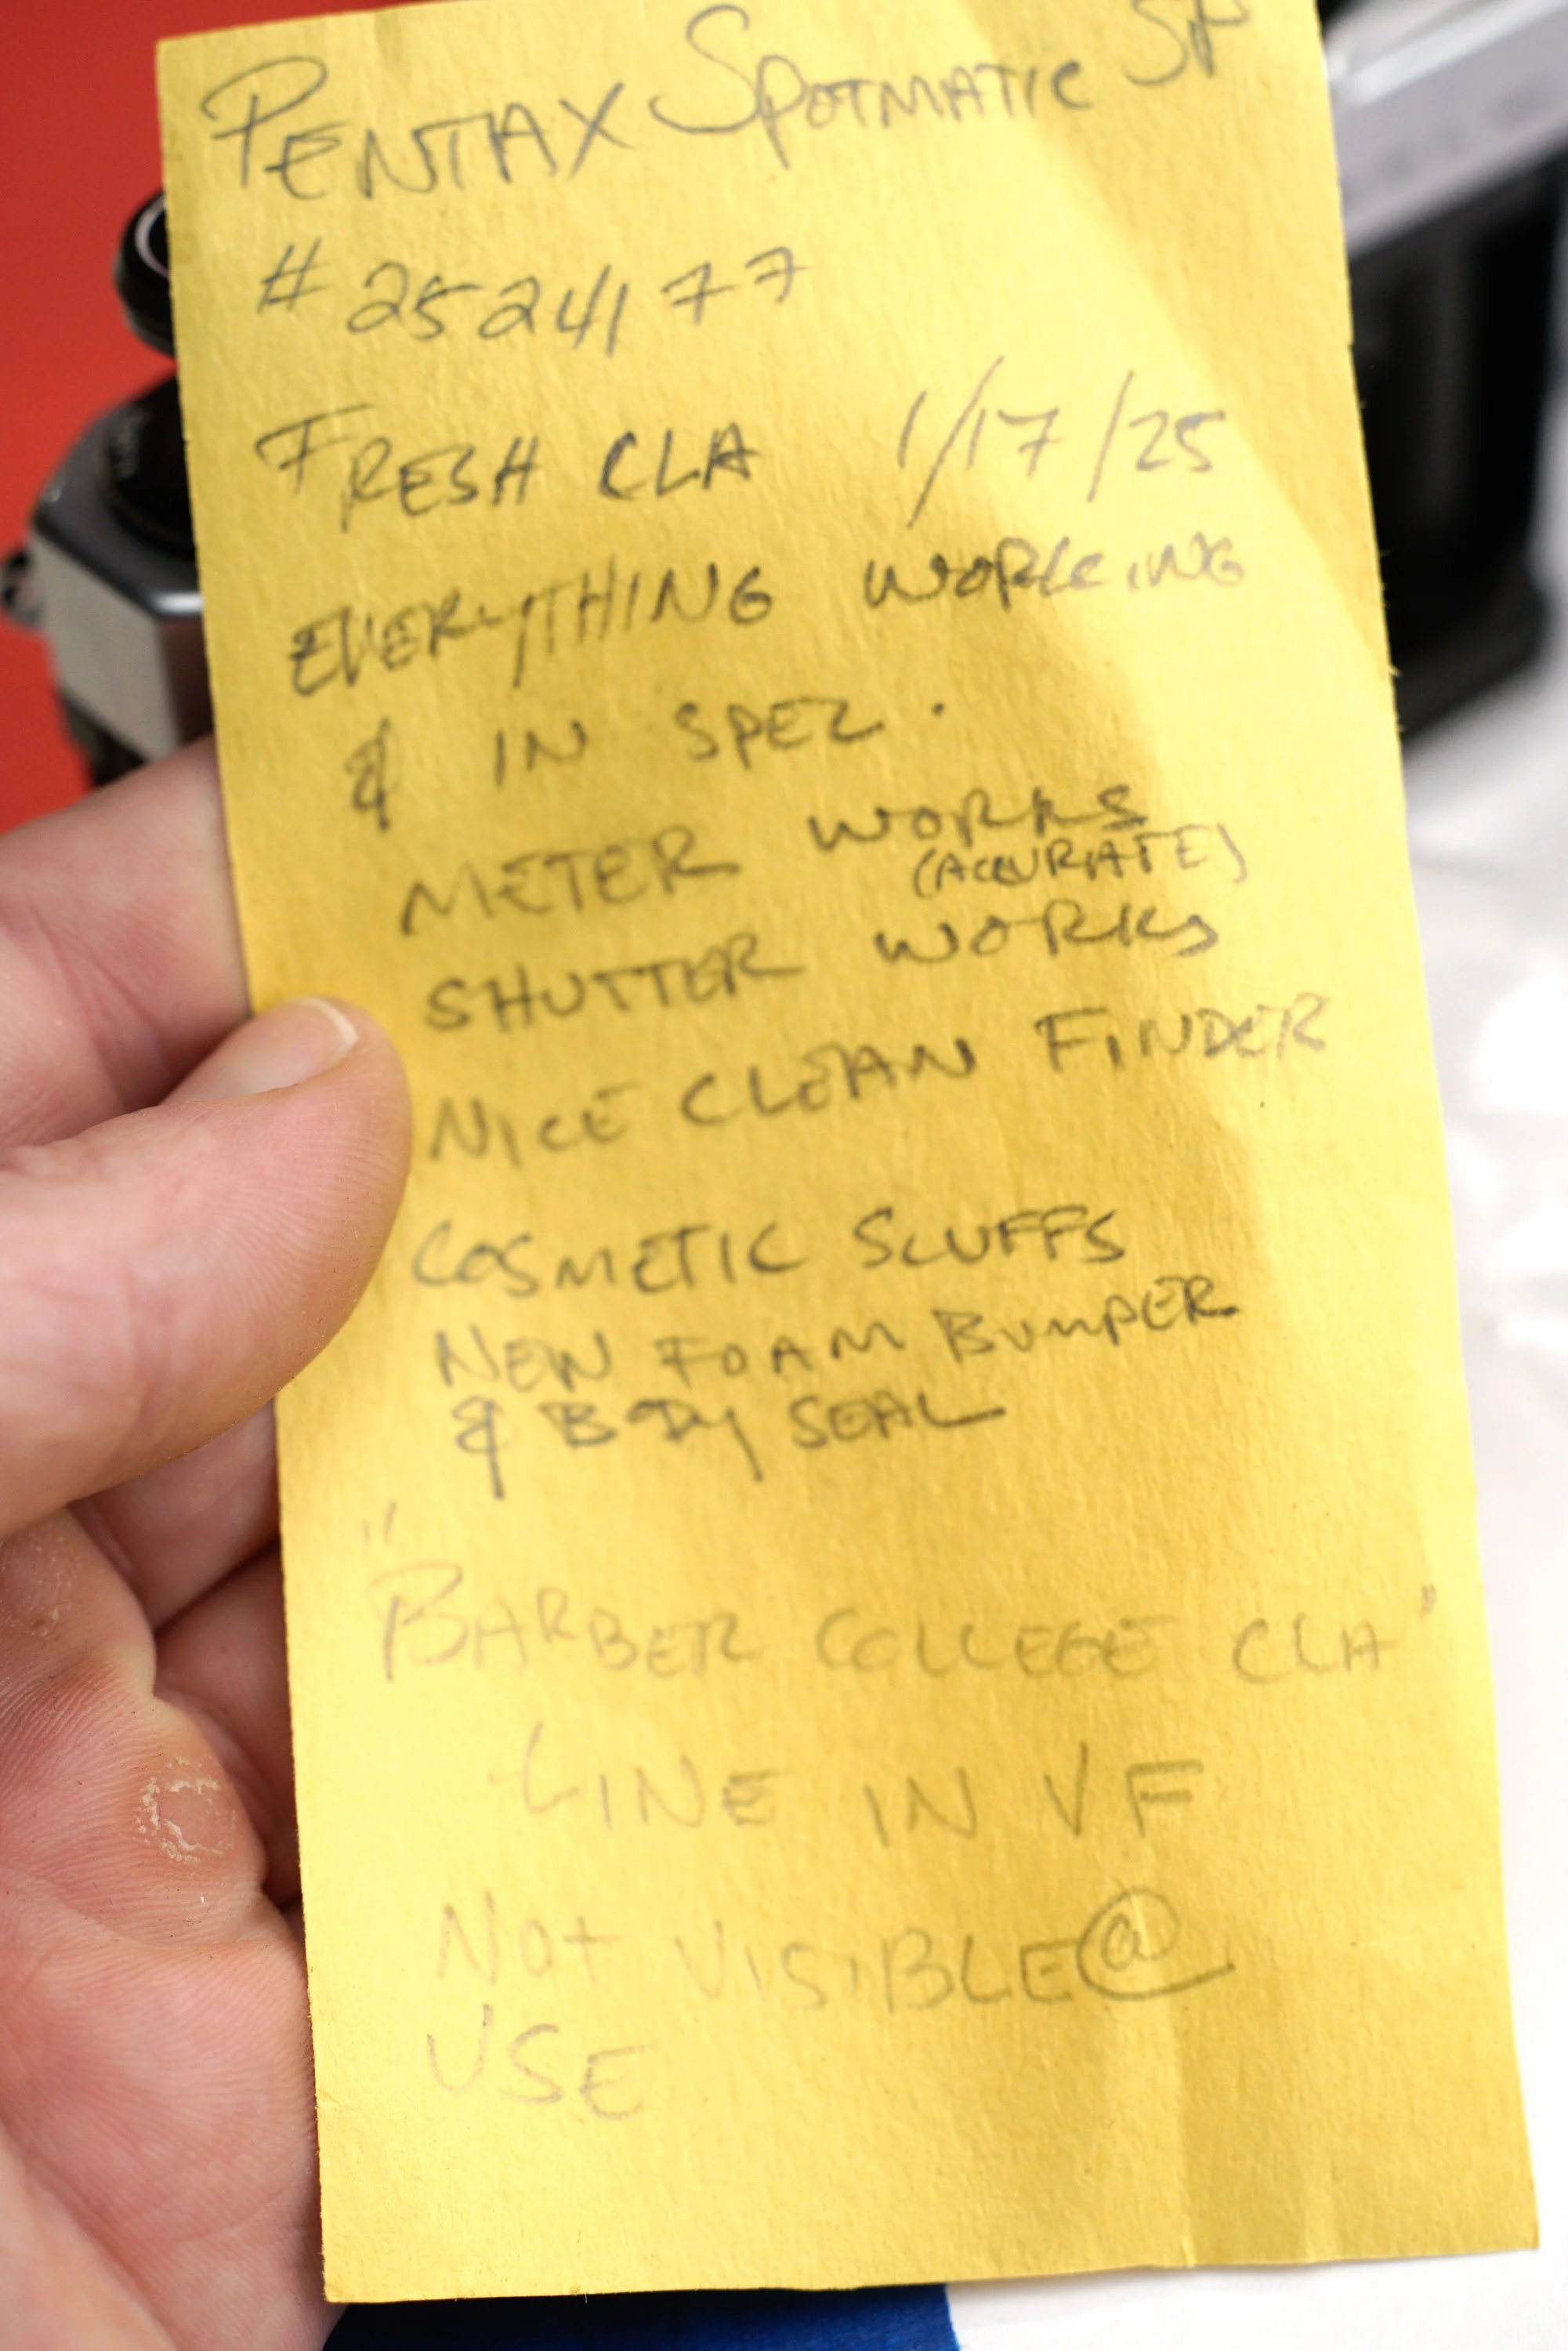 PENTAX SPOTMATIC SP
# 2524177
FRESH CLA 1/17/25
EVERYTHING WORKING
& IN SPEC.
METER WORKS
(ACCURATE)
SHUTTER WORKS
NICE CLEAN FINDER
COSMETIC SCUFFS
NEW FOAM BUMPER
& BODY SEAL
"BARBER COLLEGE CLA"
LINE IN VF
NOT VISIBLE @
USE